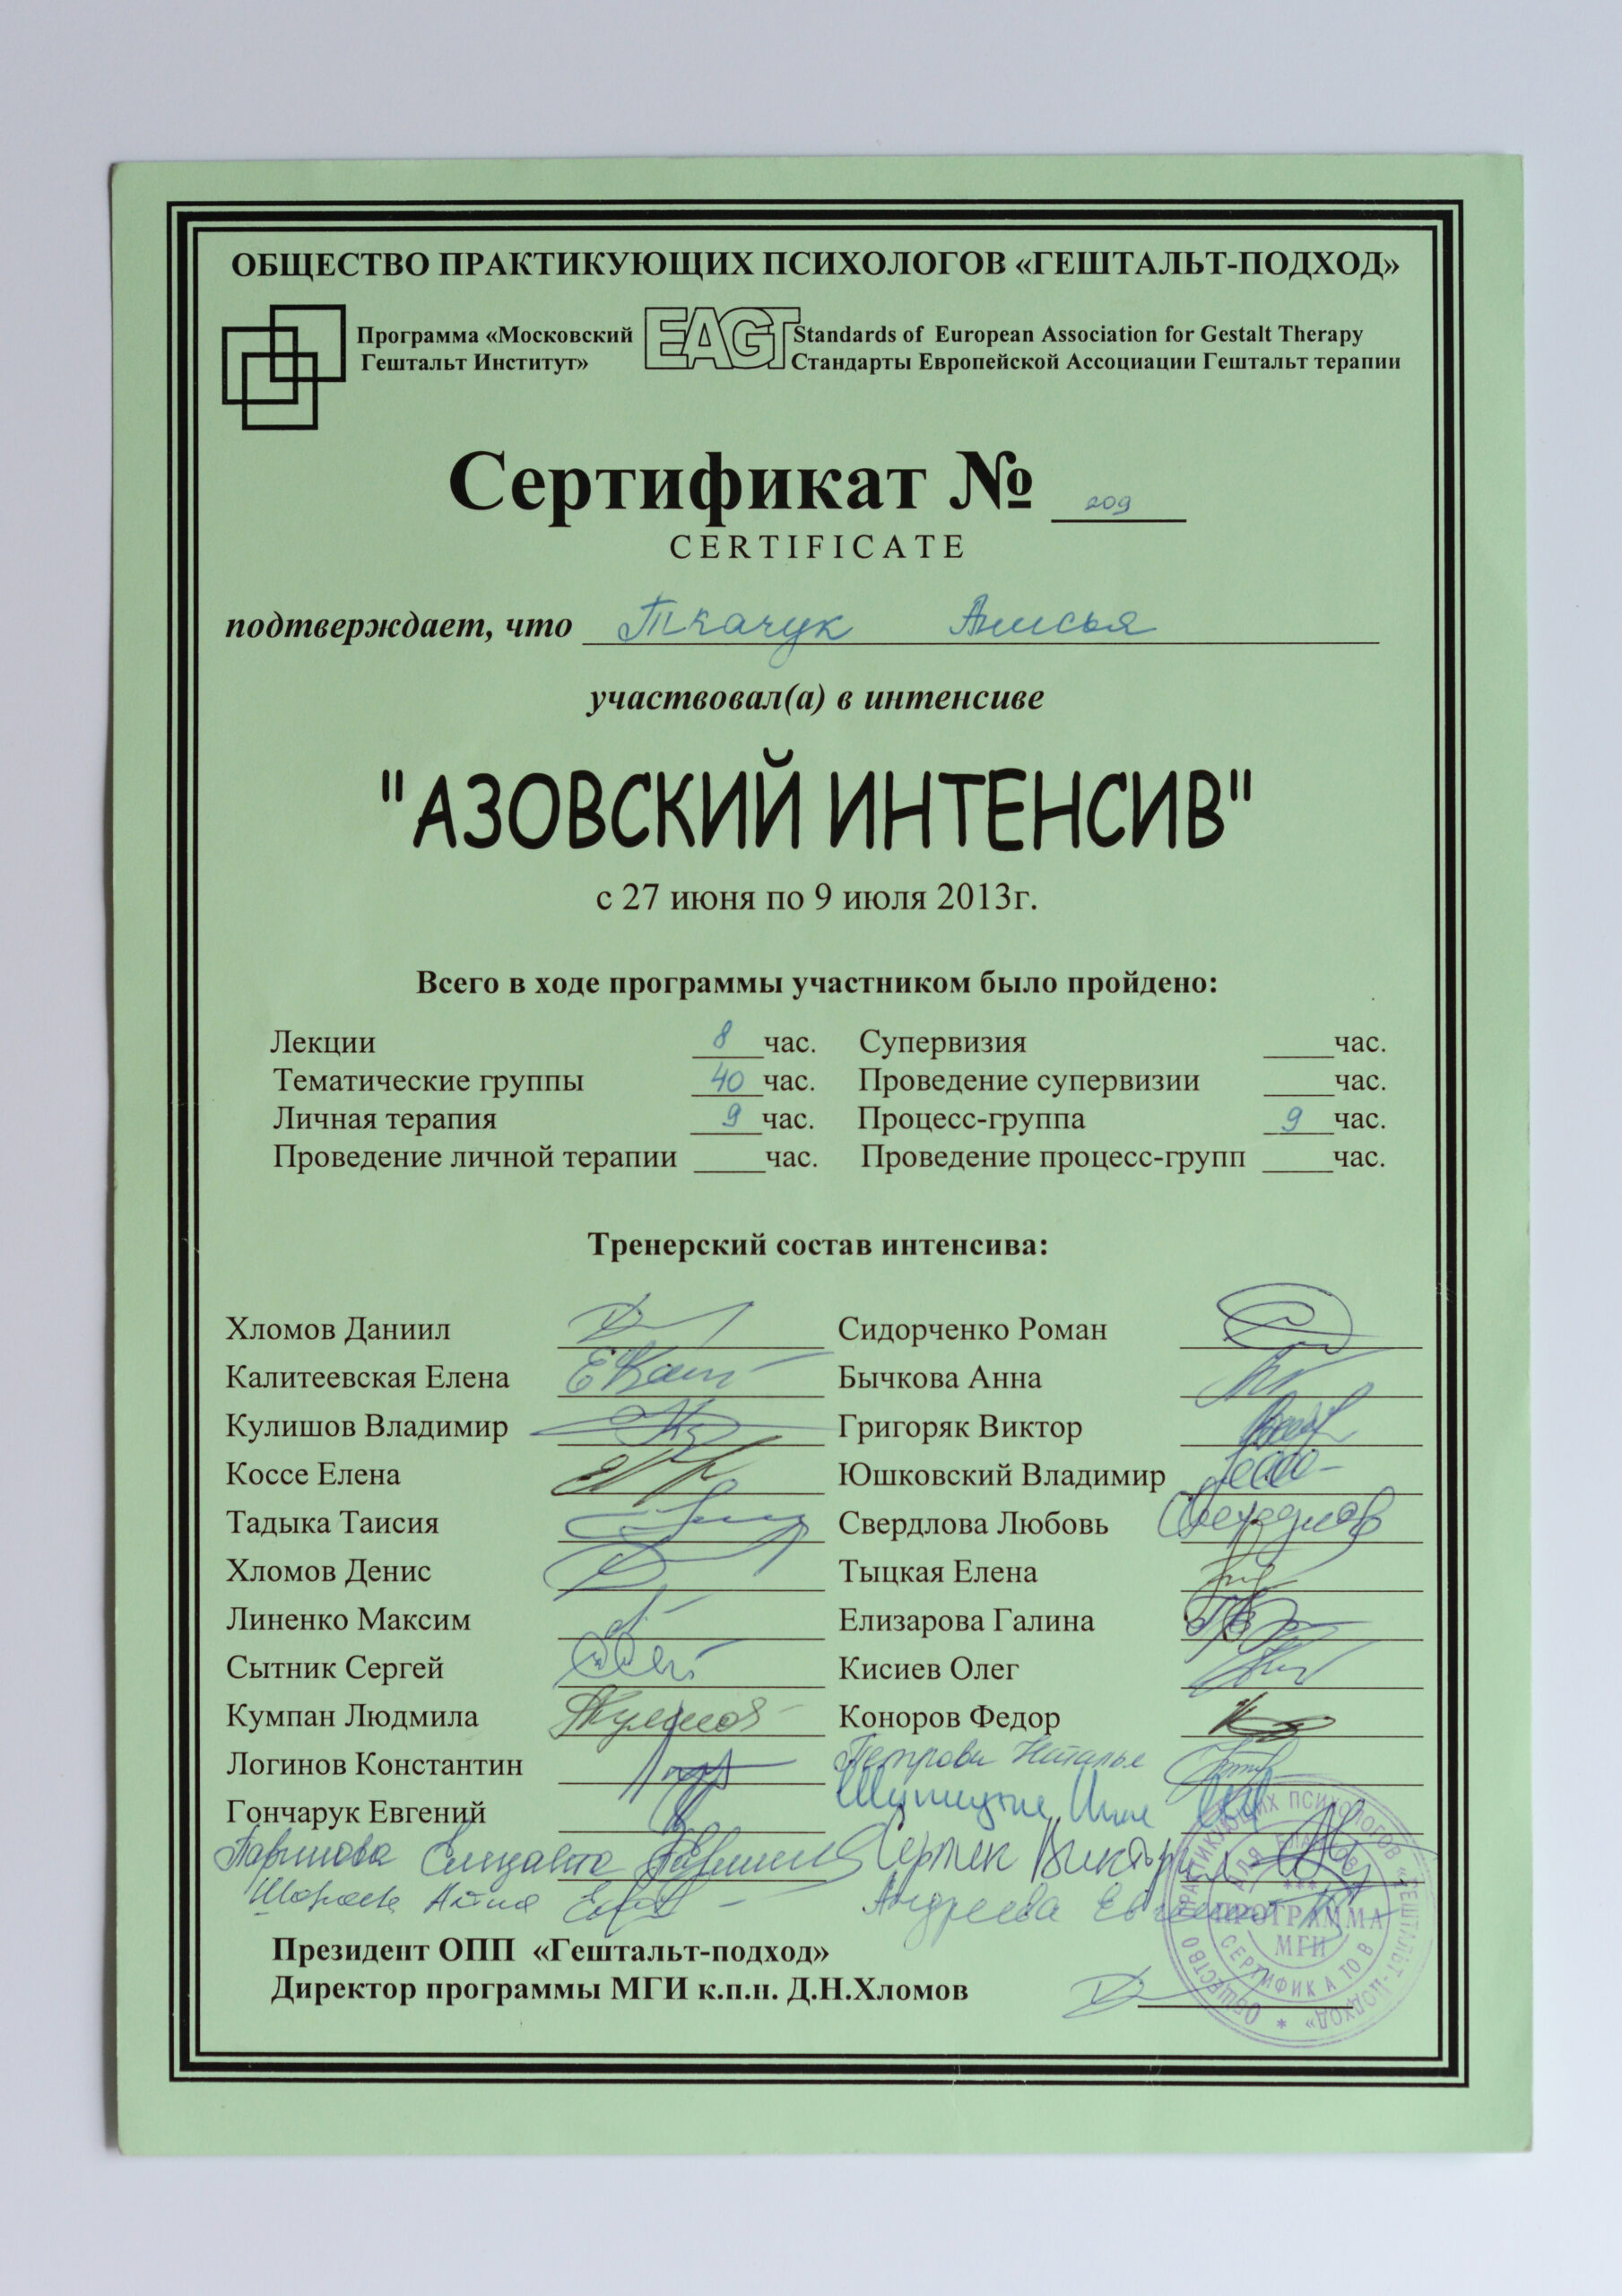 ОБЩЕСТВО ПРАКТИКУЮЩИХ ПСИХОЛОГОВ «ГЕШТАЛЬТ-ПОДХОД»
Программа «Московский
Гештальт Институт»
EAGT
Standards of European Association for Gestalt Therapy
Стандарты Европейской Ассоциации Гештальт терапии
Сертификат № 209
CERTIFICATE
подтверждает, что Ткачук Анисья
участвовал(а) в интенсиве
"АЗОВСКИЙ ИНТЕНСИВ"
с 27 июня по 9 июля 2013г.
Всего в ходе программы участником было пройдено:
Лекции 8 час. Супервизия _____час.
Тематические группы 40 час. Проведение супервизии _____час.
Личная терапия 9 час. Процесс-группа 9 час.
Проведение личной терапии _____час. Проведение процесс-групп _____час.
Тренерский состав интенсива:
Хломов Даниил Сидорченко Роман
Калитеевская Елена Бычкова Анна
Кулишов Владимир Григоряк Виктор
Коссе Елена Юшковский Владимир
Тадыка Таисия Свердлова Любовь
Хломов Денис Тыцкая Елена
Линенко Максим Елизарова Галина
Сытник Сергей Кисиев Олег
Кумпан Людмила Коноров Федор
Логинов Константин Петрова Наталья
Гончарук Евгений
Елизавета
Андреева
Президент ОПП «Гештальт-подход»
Директор программы МГИ к.п.н. Д.Н.Хломов
ОБЩЕСТВО ПРАКТИКУЮЩИХ ПСИХОЛОГОВ «ГЕШТАЛЬТ-ПОДХОД» *
ДЛЯ
СЕРТИФИКАТОВ
ПРОГРАММА
МГИ